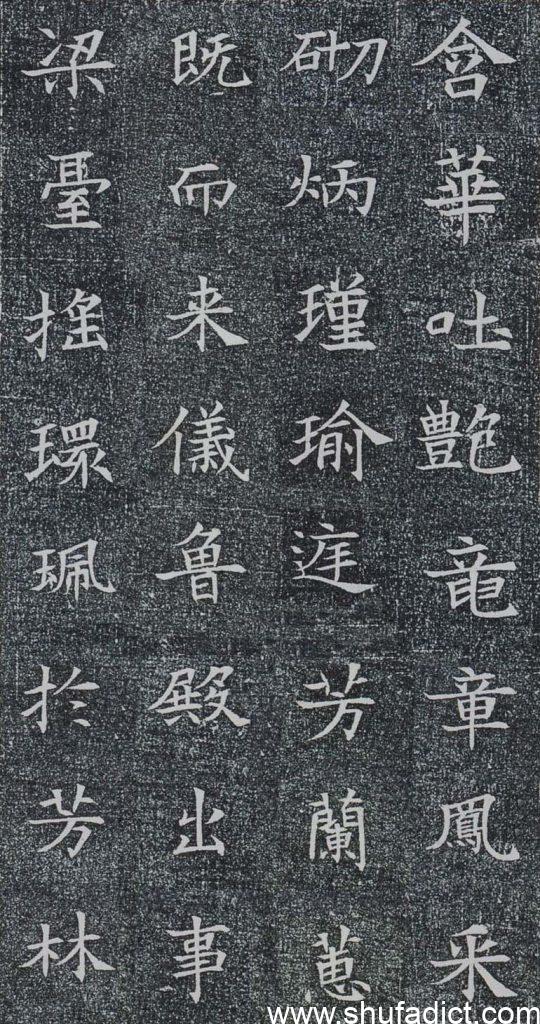 含華吐艶竜章鳳采
砌炳瑾瑜庭芳蘭蕙
既而来儀魯殿出事
梁臺搖環珮於芳林
www.shufadict.com